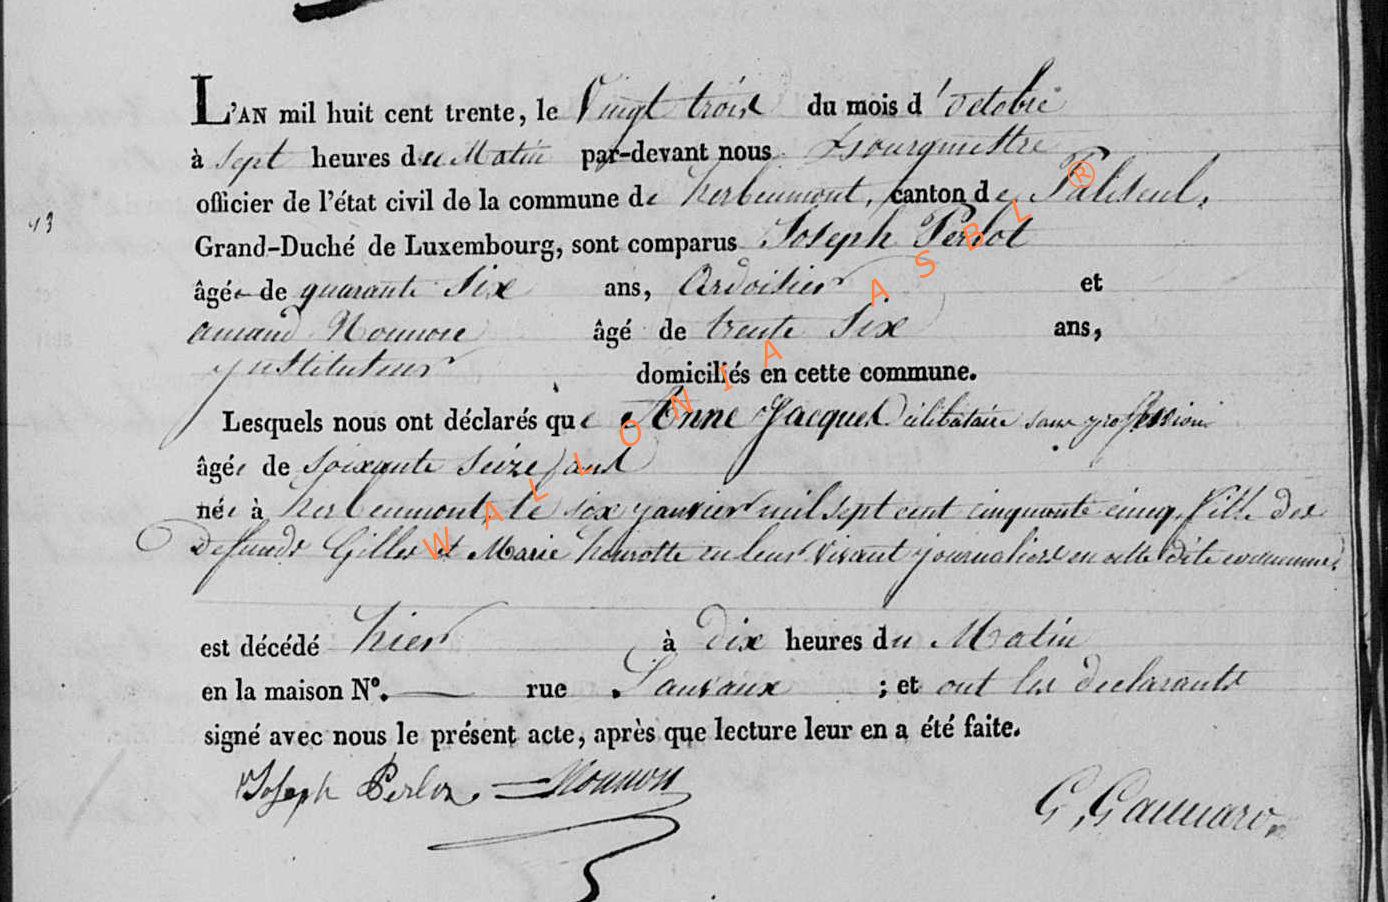 L'AN mil huit cent trente, le Vingt trois du mois d'octobre
à sept heures du Matin par-devant nous Bourgmestre
officier de l'état civil de la commune de herbeumont, canton de Paliseul,
43
Grand-Duché de Luxembourg, sont comparus Joseph Perlot
âgé de quarante Six ans, Ardoisier et
amand Nonnon âgé de trente Six ans,
instituteur domiciliés en cette commune.
Lesquels nous ont déclarés que Anne Jacques Célibataire sans profession
âgée de Soixante Seize ans
née à herbeumont, le six janvier mil sept cent cinquante cinq, fille des
Defunds Gilles et Marie henrotte en leur vivant journaliers en cette dite commune,
est décédé hier à dix heures du Matin
en la maison N°. rue Lauvaux ; et ont les declarants
signé avec nous le présent acte, après que lecture leur en a été faite.
Joseph Perlot Nonnon
WALLONIA ASBL ®